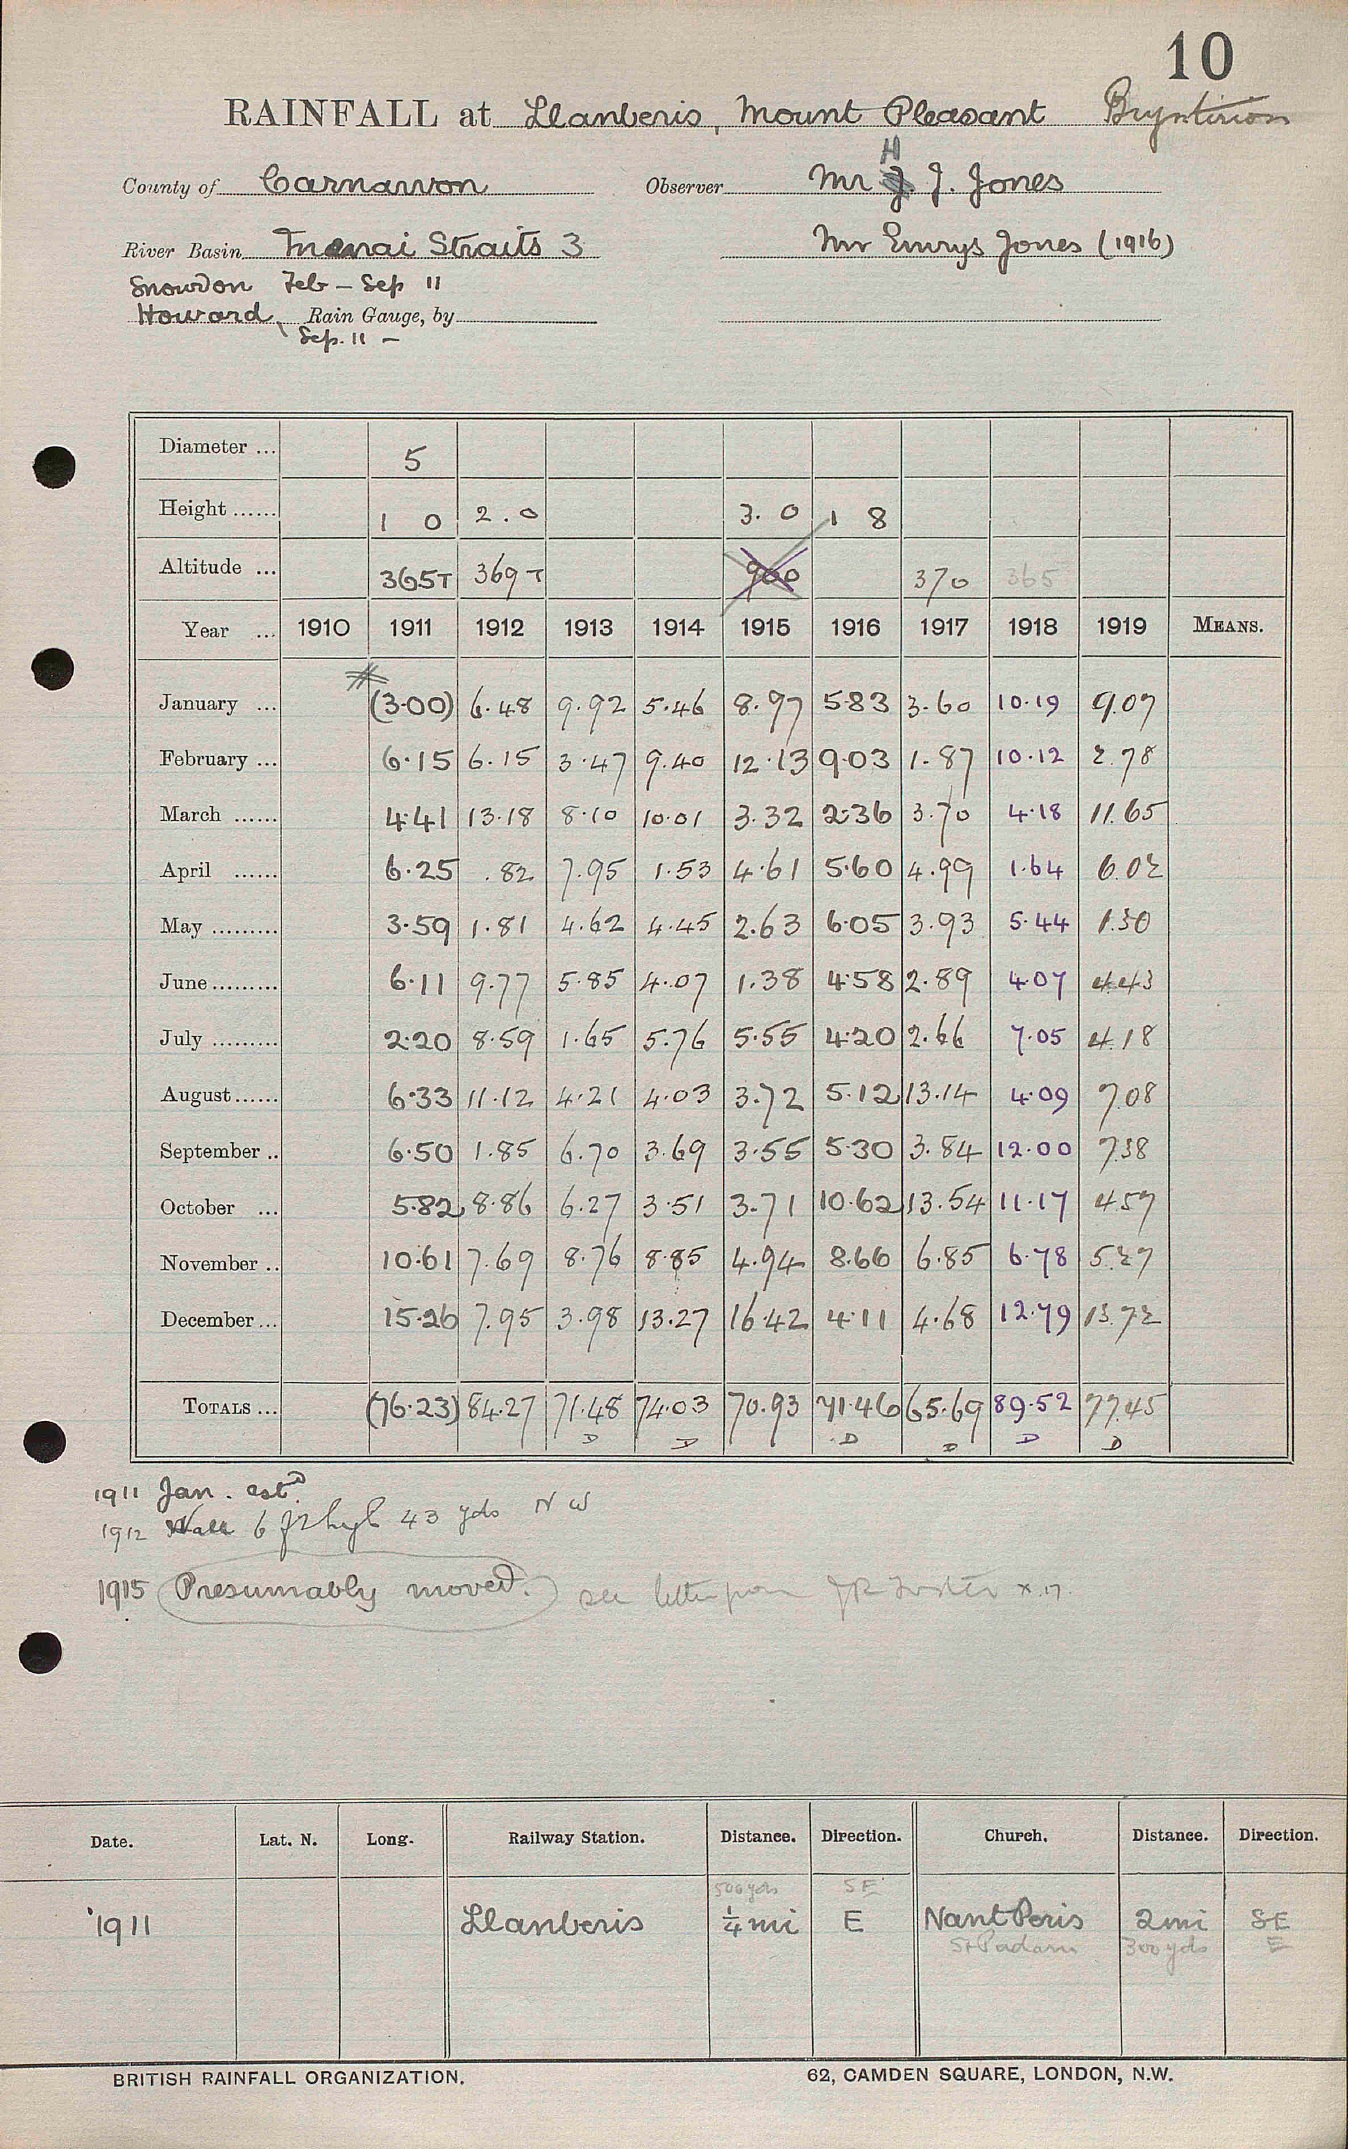 10
RAINFALL at Llanberis, Mount Pleasant Bryntirion
County of Carnarvon Observer Mr H J. Jones
River Basin Menai Straits 3 Mr Emrys Jones (1916)
Snowdon Feb - Sep 11
Howard, Rain Gauge, by
Sep. 11 -
Diameter ... 5
Height ...... 1 0 2.0 3. 0 1 8
Altitude ... 365T 369T 900 370 365
Year ... 1910 1911 1912 1913 1914 1915 1916 1917 1918 1919 MEANS.
January ... (3·00) 6.48 9.92 5.46 8.97 5·83 3.60 10·19 9.07
February ... 6·15 6.15 3.47 9.40 12.13 9·03 1.87 10·12 2.78
March ...... 4·41 13.18 8.10 10.01 3.32 2·36 3.70 4·18 11.65
April ...... 6·25 .82 7.95 1.53 4.61 5·60 4.99 1·64 6.02
May ......... 3·59 1.81 4.62 4.45 2.63 6·05 3.93 5·44 1.30
June ......... 6·11 9.77 5.85 4.07 1.38 4·58 2.89 4·07 4.43
July ......... 2·20 8.59 1.65 5.76 5.55 4·20 2.66 7·05 4.18
August ...... 6·33 11.12 4.21 4.03 3.72 5.12 13.14 4·09 7.08
September .. 6·50 1.85 6.70 3.69 3.55 5·30 3.84 12·00 7.38
October ... 5·82 8.86 6.27 3.51 3.71 10·62 13.54 11·17 4.57
November .. 10·61 7.69 8.76 8.85 4.94 8·66 6.85 6·78 5.27
December ... 15·26 7.95 3.98 13.27 16.42 4·11 4.68 12·79 13.72
TOTALS ... (76·23) 84.27 71.48 74.03 70.93 71·46 65.69 89·52 77.45
D D D D D D
1911 Jan. estd.
1912 Wall 6 ft high 43 yds N W
1915 Presumably moved. see letter from x.17.
Date. Lat. N. Long. Railway Station. Distance. Direction. Church. Distance. Direction.
500 yds SE
1911 Llanberis ¼ mi E Nant Peris 2 mi SE
St Padarn 300 yds E
BRITISH RAINFALL ORGANIZATION. 62, CAMDEN SQUARE, LONDON, N.W.